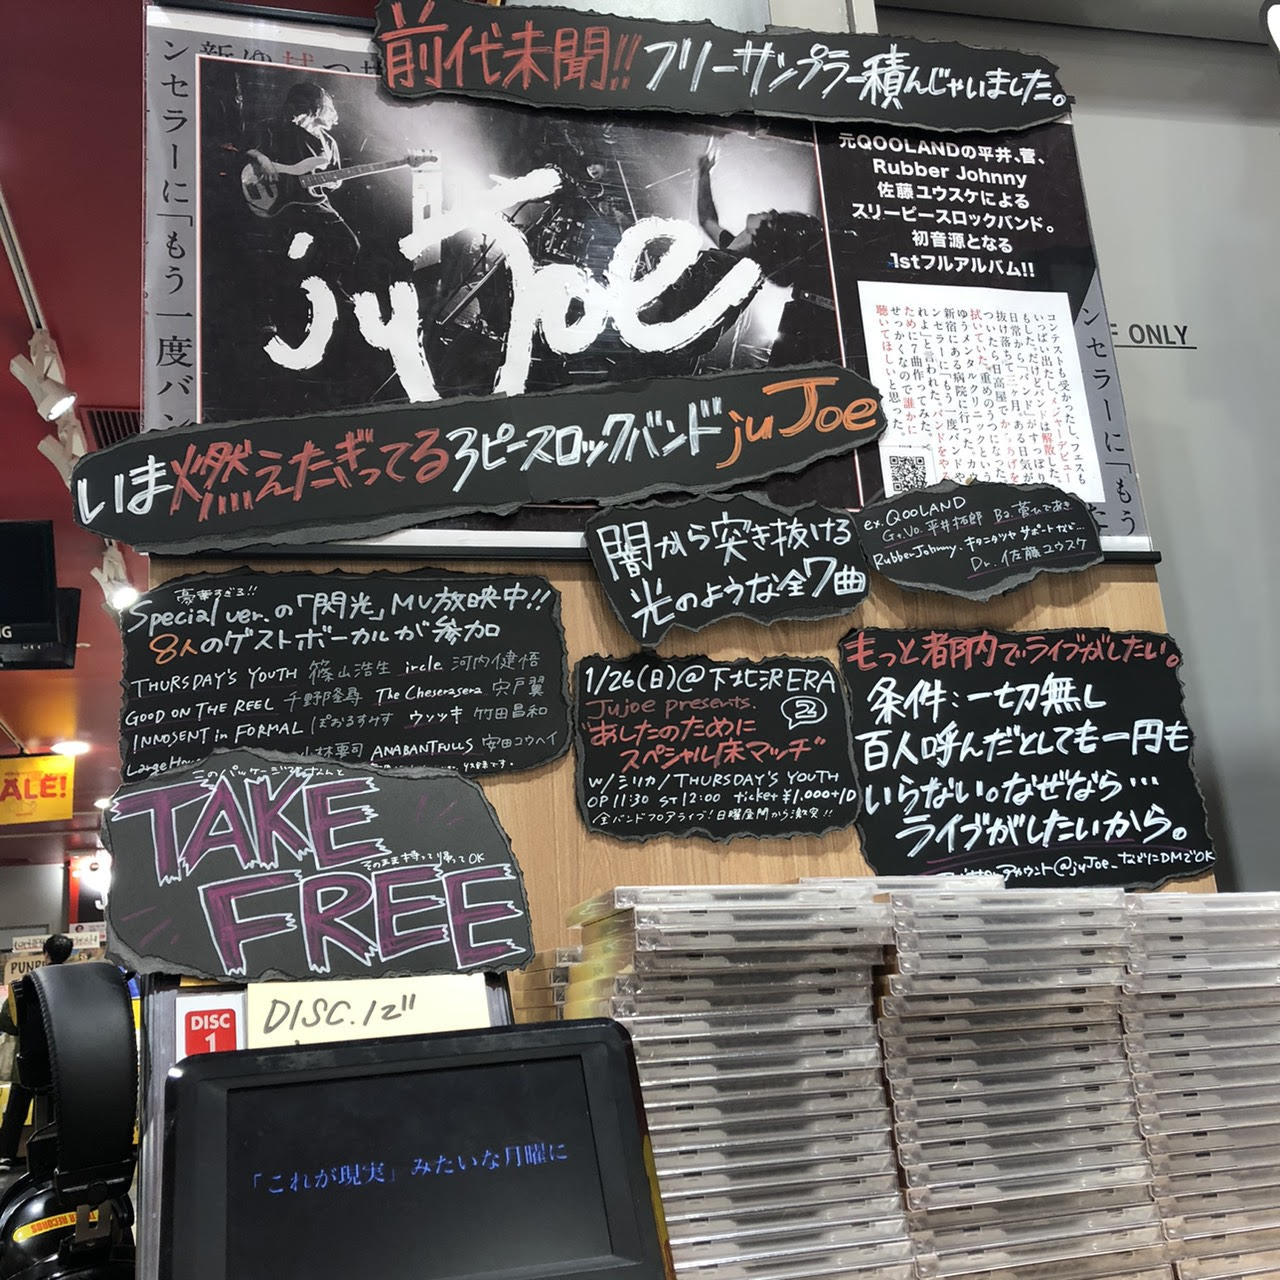 前代未聞!!フリーサンプラー積んじゃいました。
ンセラーに「もう一度バン
juJoe
元QOOLANDの平井、菅、
Rubber Johnny
佐藤ユウスケによる
スリーピースロックバンド。
初音源となる
1stフルアルバム!!
コンテストも受かったしフェスも
いっぱい出たしメジャーデビュー
もした。だけどバンドは解散した。
日常から「バンド」がすっぽり
抜け落ちて三ヶ月、ある日気が
ついたら日高屋でからあげを
拭いていた。
ゆうメンタルクリニックという
新宿にある病院に行った。カウ
ンセラーに「もう一度バンドをや
れよ」と言われた。
ために7曲作ってみた。
せっかくなので誰かに
聴いてほしいと思った。
ンセラーに「もう
ONLY
いま燃えたぎってる3ピースロックバンドjuJoe
闇から突き抜ける
光のような全7曲
ex.QOOLAND
G.Vo.平井拓郎 Ba.菅ひであき
RubberJohnny.キタニタツヤ サポートなど…
Dr.佐藤ユウスケ
豪華すぎる!!
Special ver.の「閃光」MV放映中!!
8人のゲストボーカルが参加
THURSDAY'S YOUTH 篠山浩生 ircle 河内健悟
GOOD ON THE REEL 千野隆尋 The Cheserasera 宍戸翼
INNOSENT in FORMAL ぽおるすみす ウソツキ 竹田昌和
ANABANTFULLS 安田コウヘイ
1/26(日)@下北沢ERA
Jujoe presents.
"あしたのために 2
スペシャル床マッチ"
w/ミリカ/THURSDAY'S YOUTH
OP 11:30 ST 12:00 ticket ¥1,000+1D
全バンドフロアライブ!日曜昼間から激突!!
もっと都内でライブがしたい。
条件:一切無し
百人呼んだとしても一円も
いらない。なぜなら…
ライブがしたいから。
アカウント@juJoe_などにDMでOK
TAKE
そのまま持って帰ってOK
FREE
ALE!
DISC
1
DISC.12"
「これが現実」みたいな月曜に